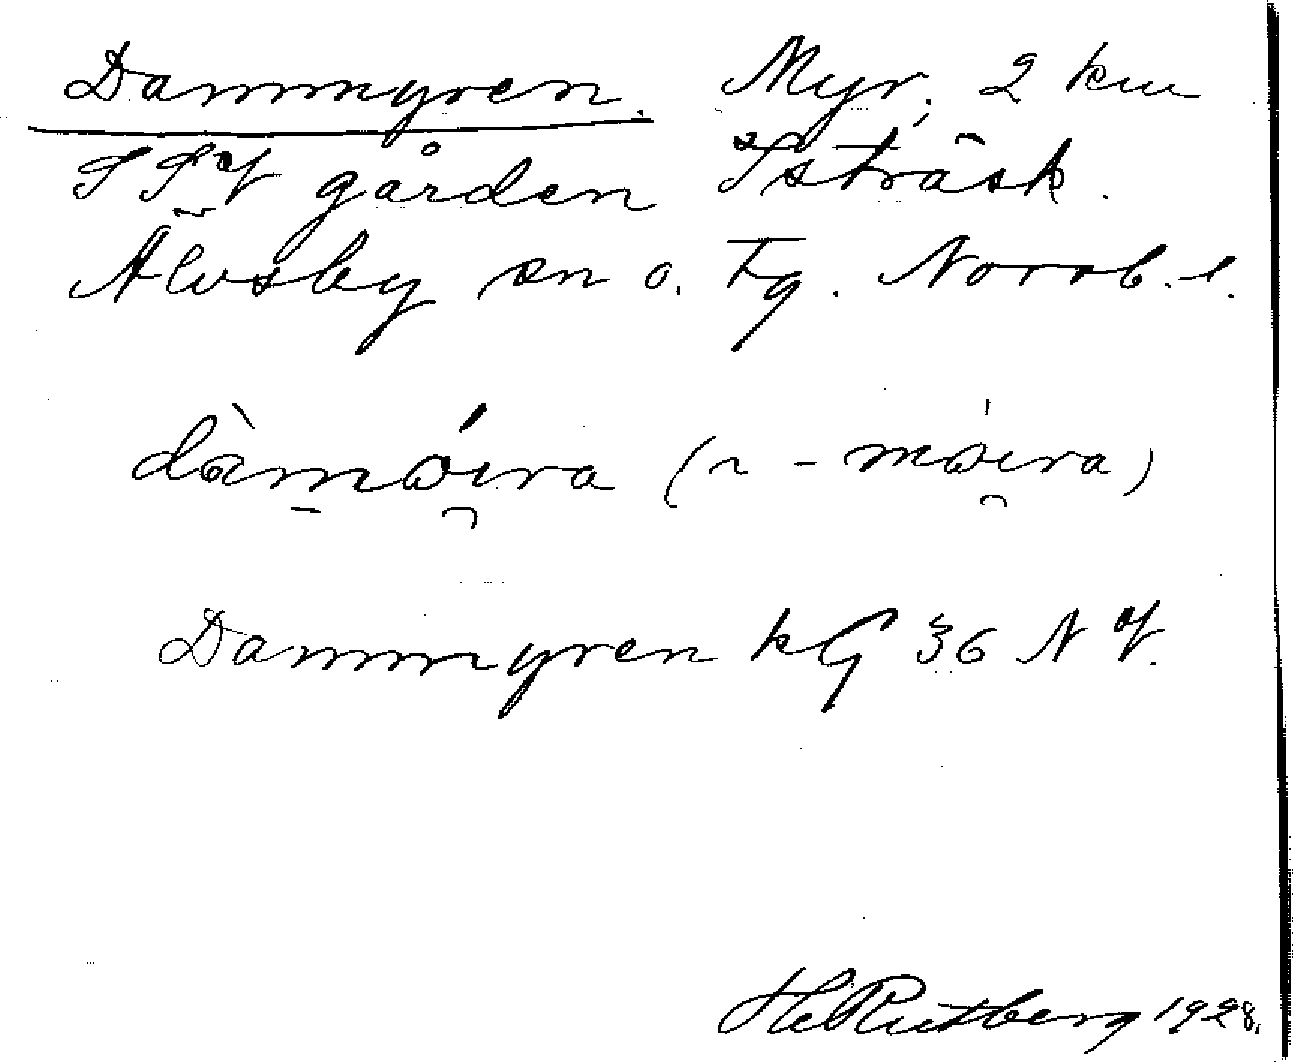 Dammyren. Myr, 2 km
SSV gården Isträsk.
Älvsby sn o. tg. Norrb. l.
dàmǿira (~ - mǿira)
Dammyren kG 36 NV.
H Rutberg 1928.